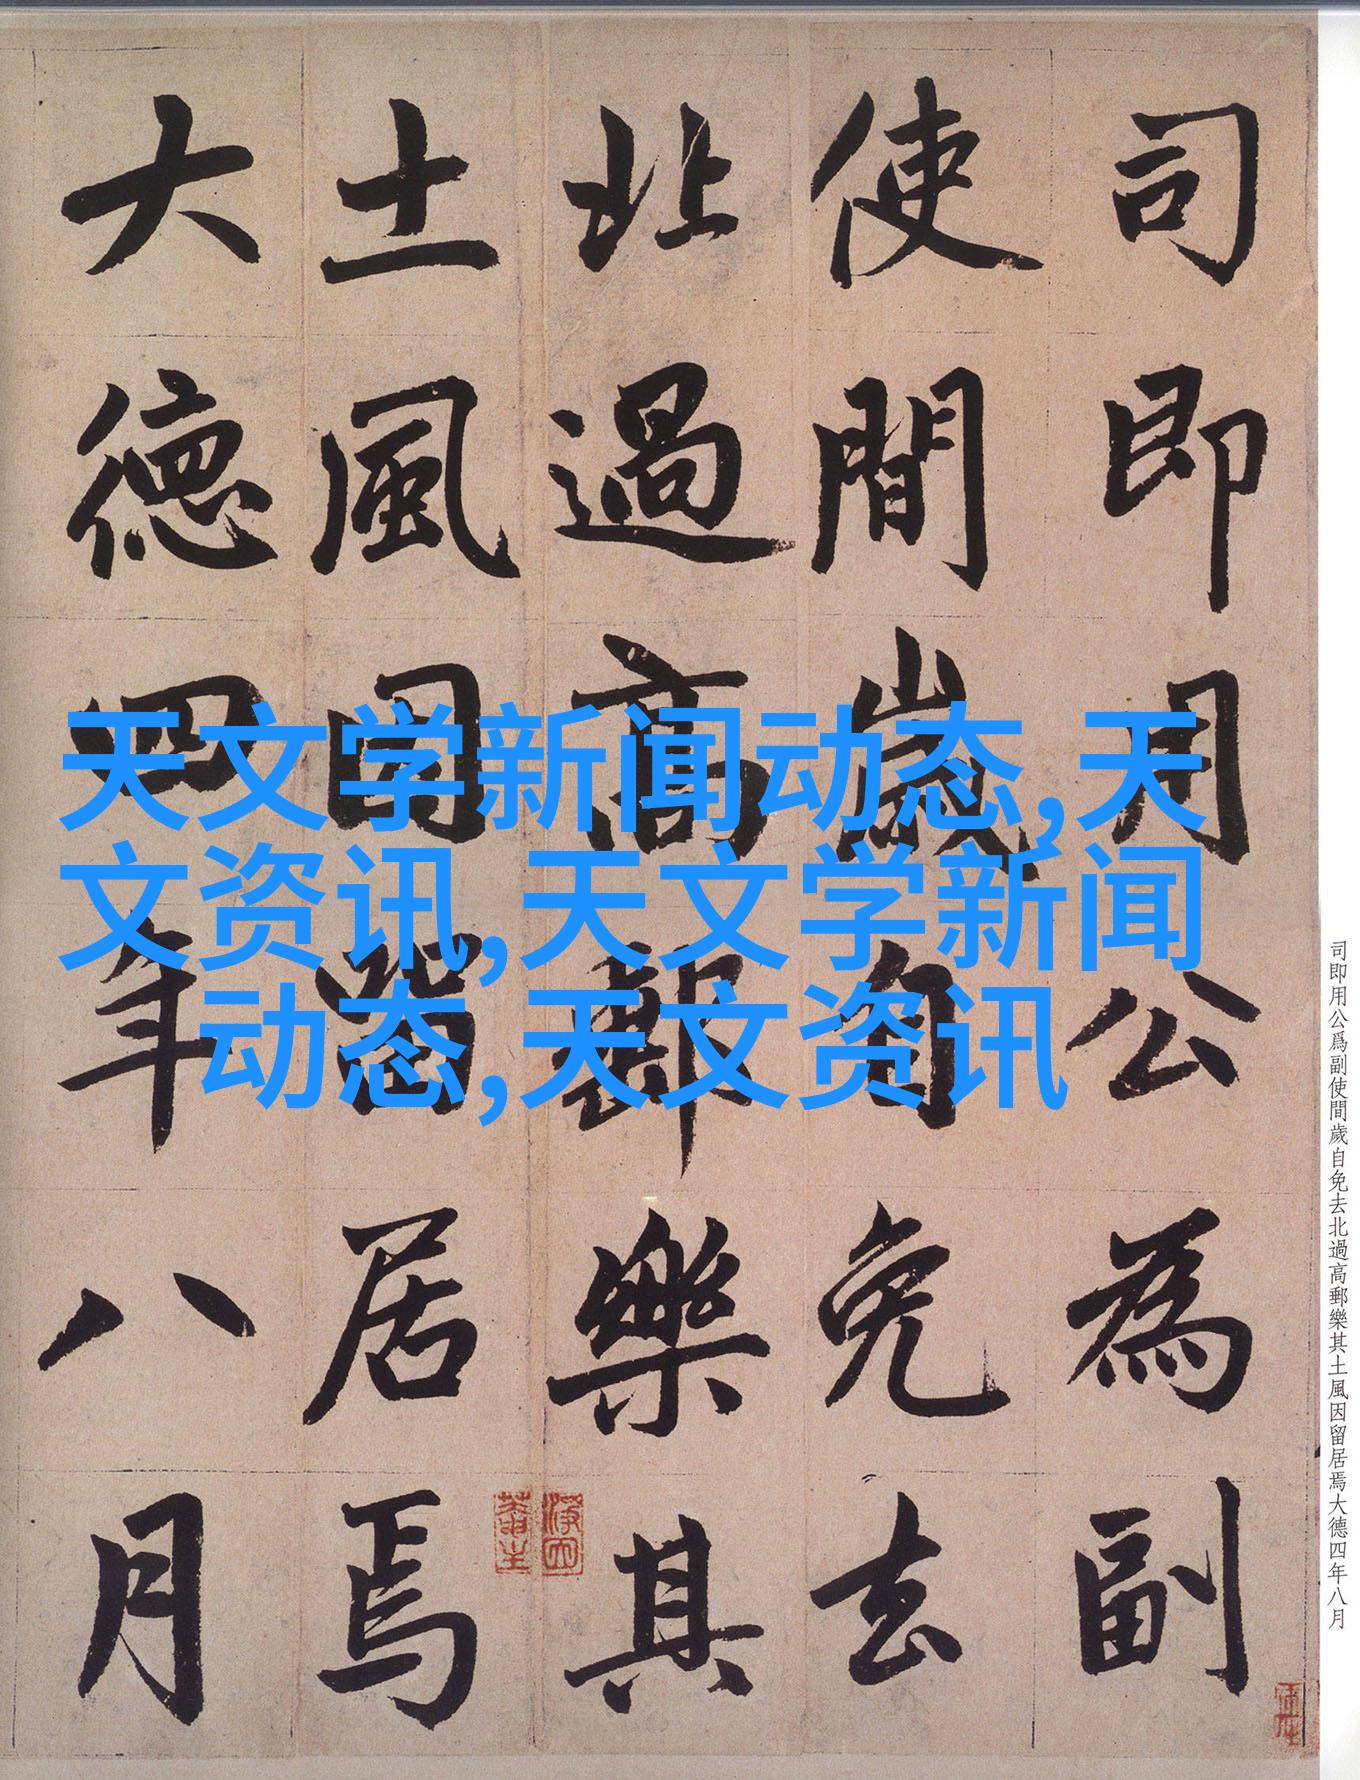 司即用公為副
使間歲自免去
北過高郵樂其
土風因留居焉
大德四年八月
天文学新闻动态,天
文资讯,天文学新闻
动态,天文资讯
司即用公爲副使間歲自免去北過高郵樂其土風因留居焉大德四年八月